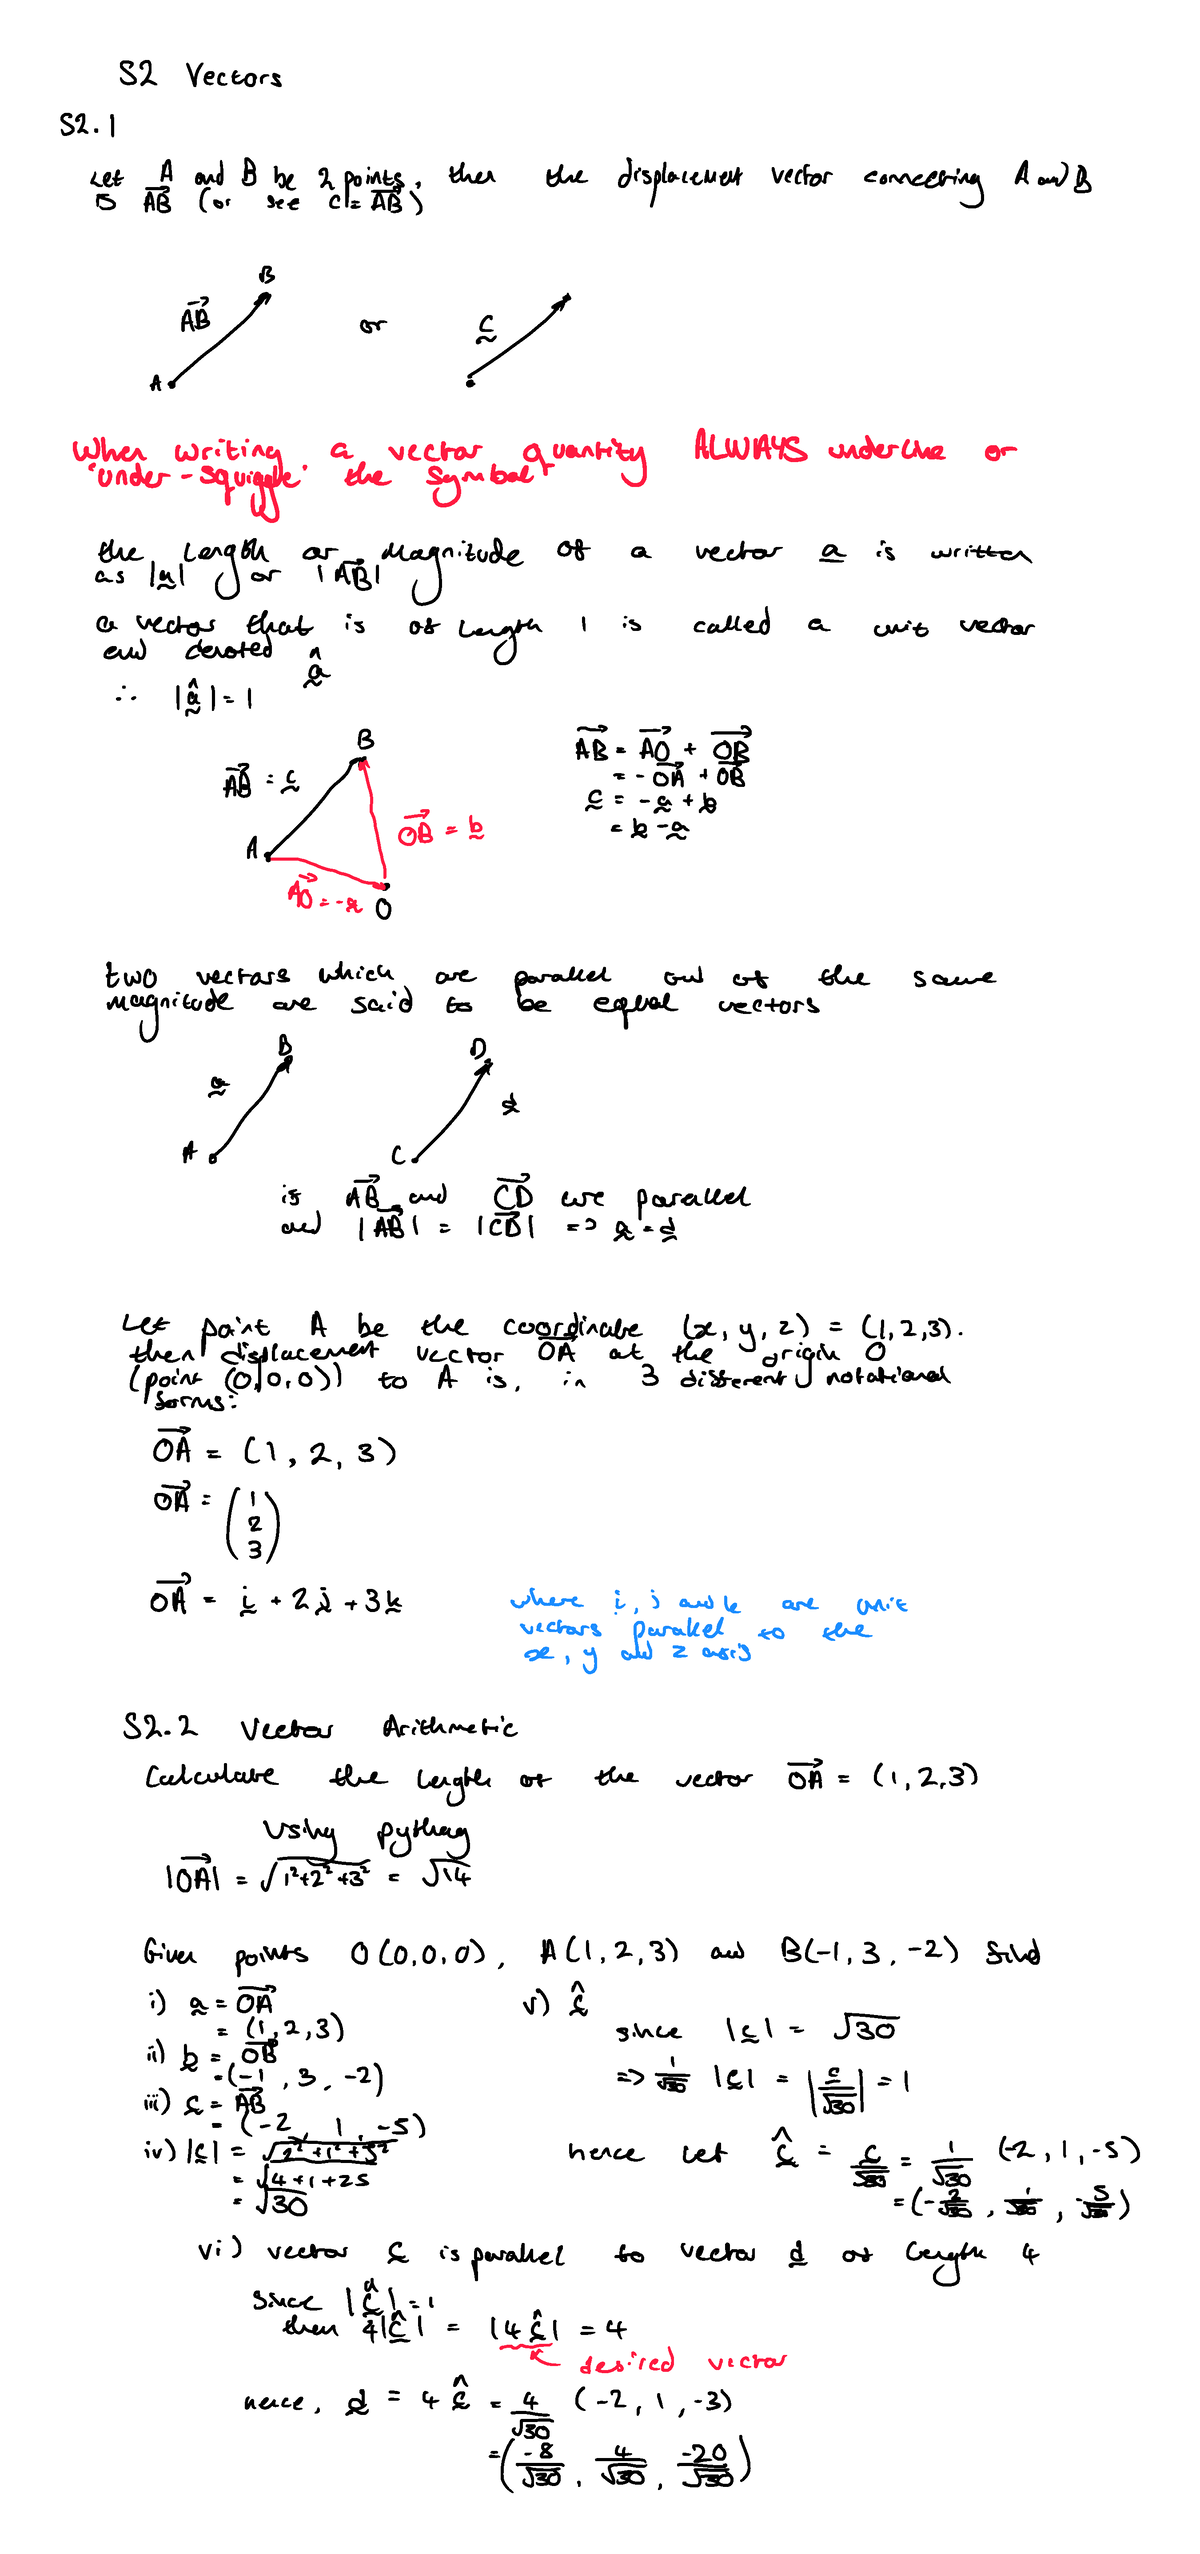 S2 Vectors
S2.1
Let A and B be 2 points, then the displacement vector connecting A and B
is $\overrightarrow{AB}$ (or see c = $\overrightarrow{AB}$)
B
$\overrightarrow{AB}$ or c̰
A
When writing a vector quantity ALWAYS underline or
'under-squiggle' the symbol
the length or magnitude of a vector a̰ is written
as |a̰| or |$\overrightarrow{AB}$|
a vector that is of length 1 is called a unit vector
and denoted $\hat{a̰}$
∴ |$\hat{a̰}$| = 1
B
$\overrightarrow{AB}$ = c̰
A
$\overrightarrow{OB}$ = b̰
$\overrightarrow{AO}$ = -a̰
O
$\overrightarrow{AB}$ = $\overrightarrow{AO}$ + $\overrightarrow{OB}$
= -$\overrightarrow{OA}$ + $\overrightarrow{OB}$
c̰ = -a̰ + b̰
= b̰ - a̰
two vectors which are parallel and of the same
magnitude are said to be equal vectors
B D
a̰ d̰
A C
if $\overrightarrow{AB}$ and $\overrightarrow{CD}$ are parallel
and |$\overrightarrow{AB}$| = |$\overrightarrow{CD}$| => a̰ = d̰
Let point A be the coordinate (x, y, z) = (1,2,3).
then displacement vector $\overrightarrow{OA}$ at the origin O
(point (0,0,0)) to A is, in 3 different notational
forms:
$\overrightarrow{OA}$ = (1, 2, 3)
$\overrightarrow{OA}$ = $\begin{pmatrix}1\\2\\3\end{pmatrix}$
$\overrightarrow{OA}$ = ḭ + 2j̰ + 3k̰
where i, j and k are unit
vectors parallel to the
x, y and z axis
S2.2 Vector Arithmetic
Calculate the length of the vector $\overrightarrow{OA}$ = (1,2,3)
Using pythag
|$\overrightarrow{OA}$| = $\sqrt{1^2+2^2+3^2}$ = $\sqrt{14}$
Given points O(0,0,0), A(1,2,3) and B(-1,3,-2) find
i) a̰ = $\overrightarrow{OA}$
= (1,2,3)
ii) b̰ = $\overrightarrow{OB}$
= (-1, 3, -2)
iii) c̰ = $\overrightarrow{AB}$
= (-2, 1, -5)
iv) |c̰| = $\sqrt{2^2+1^2+5^2}$
= $\sqrt{4+1+25}$
= $\sqrt{30}$
v) $\hat{c̰}$
since |c̰| = $\sqrt{30}$
=> $\frac{1}{\sqrt{30}}$ |c̰| = $\left|\frac{c̰}{\sqrt{30}}\right|$ = 1
hence let $\hat{c̰}$ = $\frac{c̰}{\sqrt{30}}$ = $\frac{1}{\sqrt{30}}$ (-2, 1, -5)
= $(-\frac{2}{\sqrt{30}}, \frac{1}{\sqrt{30}}, -\frac{5}{\sqrt{30}})$
vi) vector c̰ is parallel to vector d̰ of length 4
since |$\hat{c̰}$| = 1
then 4|$\hat{c̰}$| = |4$\hat{c̰}$| = 4
desired vector
hence, d̰ = 4$\hat{c̰}$ = $\frac{4}{\sqrt{30}}$ (-2, 1, -3)
= $\left(\frac{-8}{\sqrt{30}}, \frac{4}{\sqrt{30}}, \frac{-20}{\sqrt{30}}\right)$